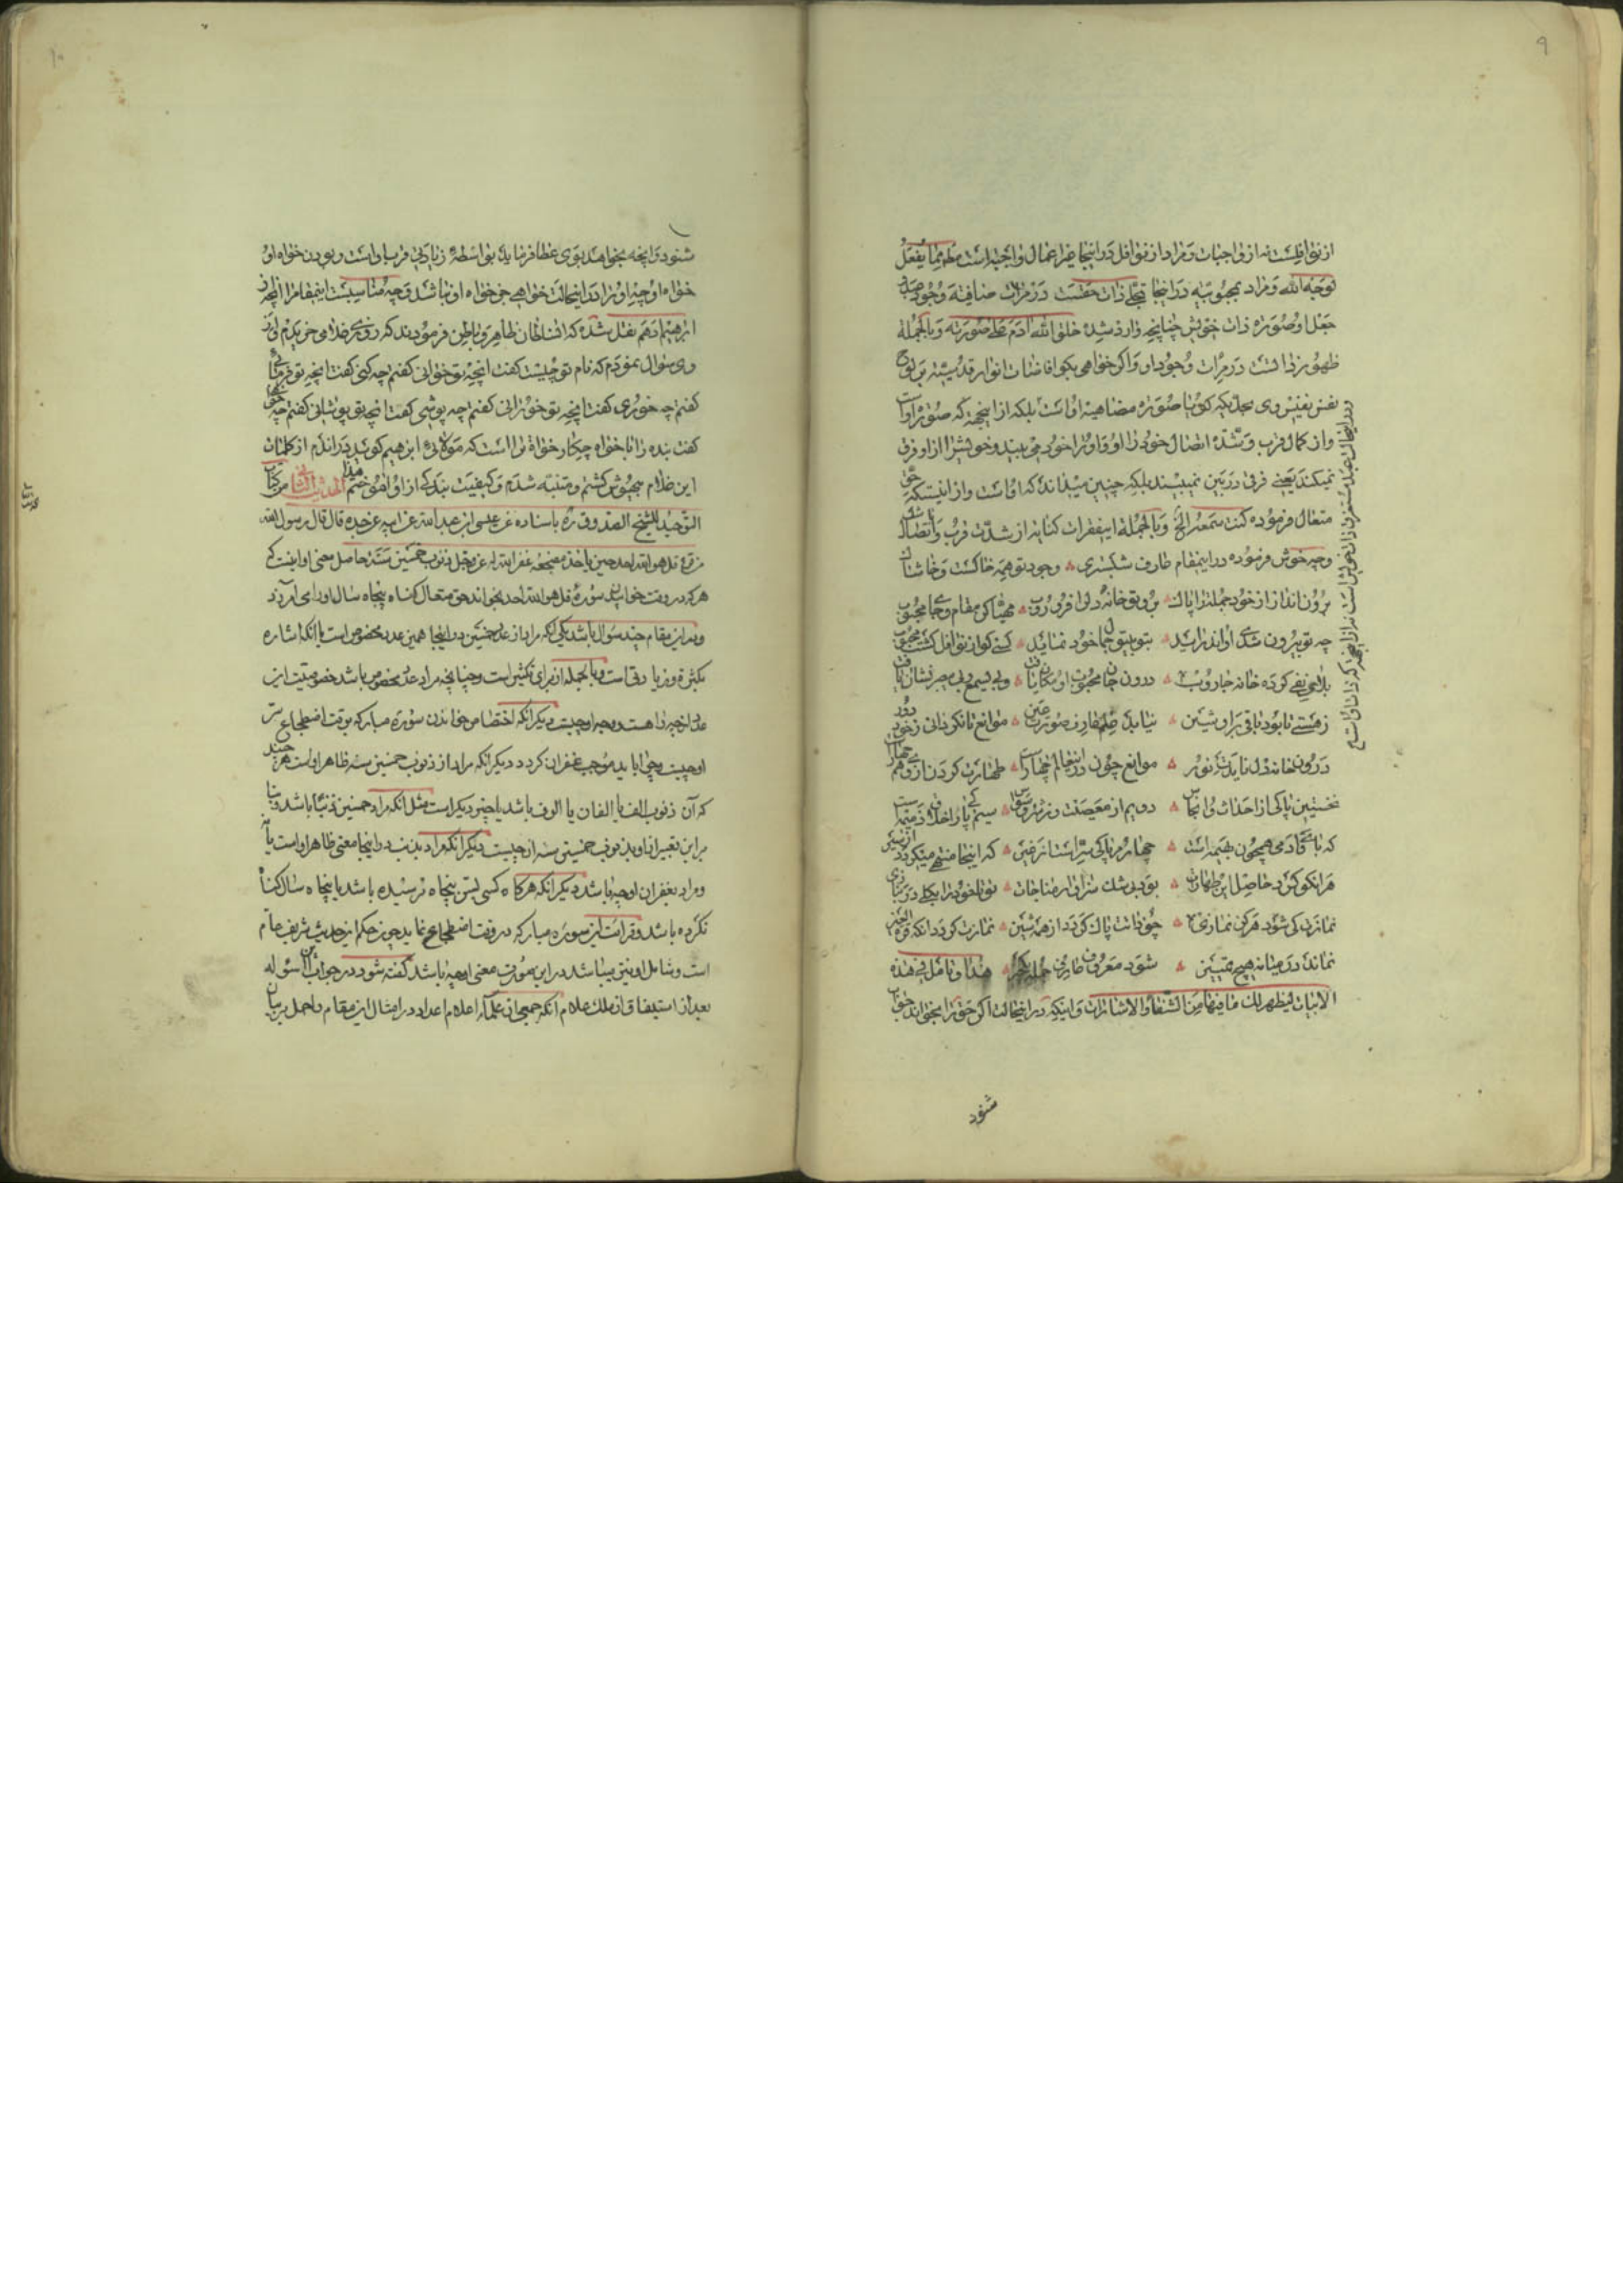 ٩
از نوافلست نه از واجبات و مراد از نوافل در اینجا غیر اعمال واجبه است
توجه الله و مراد بمحبوبیه در اینجا تجلی ذات حقست در مرآت صافیه وجود عبد
جعل او صوره ذات خویش چنانچه وارد شده خلق الله آدم علی صورته و بالجمله
ظهور ذات در مرآت وجود او و اگر خواهی بگو افاضات انوار قدسیته بر لوح
نفس نفیس وی بحدیکه گویا صوره مضاهیه اوست بلکه از اینجهة که صوره اوست
و از کمال قرب و شدة اتصال خود را او و او را خود می بیند و خویش را از او فرق
نمیکند یعنی فرقی در بین نمیبیند بلکه چنین میداند که اوست و از اینستکه حق
متعال فرموده کنت سمعه الخ و بالجمله اینفقرات کنایه از شدت قرب و اتصال باشد
و چه خوش فرموده در اینمقام عارف شبستری وجود تو همه خاکست و خاشاک
برون انداز از خود جمله را پاک برو تو خانه دل را فرو روب مهیا کن مقام و جای محبوب
چه تو بیرون شدی او اندر آید بتو بیتو جمال خود نماید کسی کو از نوافل گشت محبوب
بلای نفی کرده خانه جاروب درون جان محبوب او مکان یافت ز بی یسمع و بی یبصر نشان یافت
ز هستی تا بود باقی بر او شین نیابد علم عارف صورت عین موانع تا نگردانی ز خود دور
درون خانه دل نایدت نور موانع چون در اینعالم چهارست طهارت کردن از وی هم چهارست
نخستین پاکی از احداث و انجاس دویم از معصیت وز شر وسواس سیم پاکی ز اخلاق ذمیمه است
که با وی آدمی همچون بهیمه است چهارم پاکی سر است از غیر که اینجا منتهی میگرددش سیر
هر آنکو کرد حاصل این طهارات بود بیشک سزاوار مناجات تو تا خود را بکلی در نبازی
نمازت کی شود هرگز نمازی چو ذاتت پاک گردد از همه شین نمازت گردد آنگه قرة العین
نماند در میانه هیچ تمییز شود معروف عارف جمله یک چیز هذا و تأمل فی هذه
الابیات لیظهر لک ما فیها من الشفاء و الاشارات و اینکه در اینحالت اگر حق را بخواند جواب
شنود
١٠
شنود و آنچه بخواهد بوی عطا فرماید بواسطه زیادتی قرب باو است و بودن خواه او
خواه او چه او را در اینحالت خواهی جز خواه او نباشد و چه مناسبست اینمقام را آنچه از
ابرهیم ادهم نقل شده که آن سلطان ظاهر و باطن فرمودند که روزی غلامی خریدم از
وی سؤال نمودم که نام تو چیست گفت آنچه تو خوانی گفتم چه کنی گفت آنچه تو فرمائی
گفتم چه خوری گفت آنچه تو خورانی گفتم چه پوشی گفت آنچه تو پوشانی گفتم چه خواهی
گفت بنده را با خواه چکار خواه تراست که مولائی ابرهیم گوید در آندم از کلمات
این غلام بیهوش گشتم و متنبه شدم و کیفیت بندگی از او آموختم الحدیث الثانی من کتاب
التوحید للشیخ الصدوق ره باسناده عن عیسی بن عبد الله عن ابیه عن جده قال قال رسول الله
من قرء قل هو الله احد حین یاخذ مضجعه غفر الله له عز و جل ذنوب خمسین سنة حاصل معنی او اینست که
هر که در وقت خواب سورهٔ قل هو الله احد بخواند حق متعال گناه پنجاه سال او را می آمرزد
و در این مقام چند سؤال باشد یکی آنکه مراد از عدد خمسین در اینجا همین عدد مخصوص است یا آنکه اشاره
بکثرة و زیادتی است و بالجمله از برای تکثیر است و چنانچه مراد عدد مخصوص باشد خصوصیت این
عدد از چه راهست و وجه او چیست دیگر آنکه اختصاص خواندن سوره مبارکه بوقت اضطجاع سر
او چیست و چرا باید موجب غفران گردد دیگر آنکه مراد از ذنوب خمسین سنه ظاهر او است هر چند
که آن ذنوب الف یا الفان یا الوف باشد یا چیز دیگر است مثل آنکه مراد خمسین ذنباً باشد و بنا
بر این تعبیر از او بذنوب خمسین سنه از چیست دیگر آنکه مراد بذنب در اینجا معنی ظاهر او است یا نه
و مراد بغفران او چه باشد دیگر آنکه هرگاه کسی سنش پنجاه نرسیده باشد یا پنجاه سال گناه
نکرده باشد و قرائت این سوره مبارکه در وقت اضطجاع نماید چون حکم این حدیث شریف عام
است و شامل او نیز میباشد در این صورت معنی او چه باشد گفته شود در جواب این اسؤله
بعد از استیفاق از ملک علام آنکه جمعی از علماء اعلام اعداد در امثال این مقام را حمل بر بیان